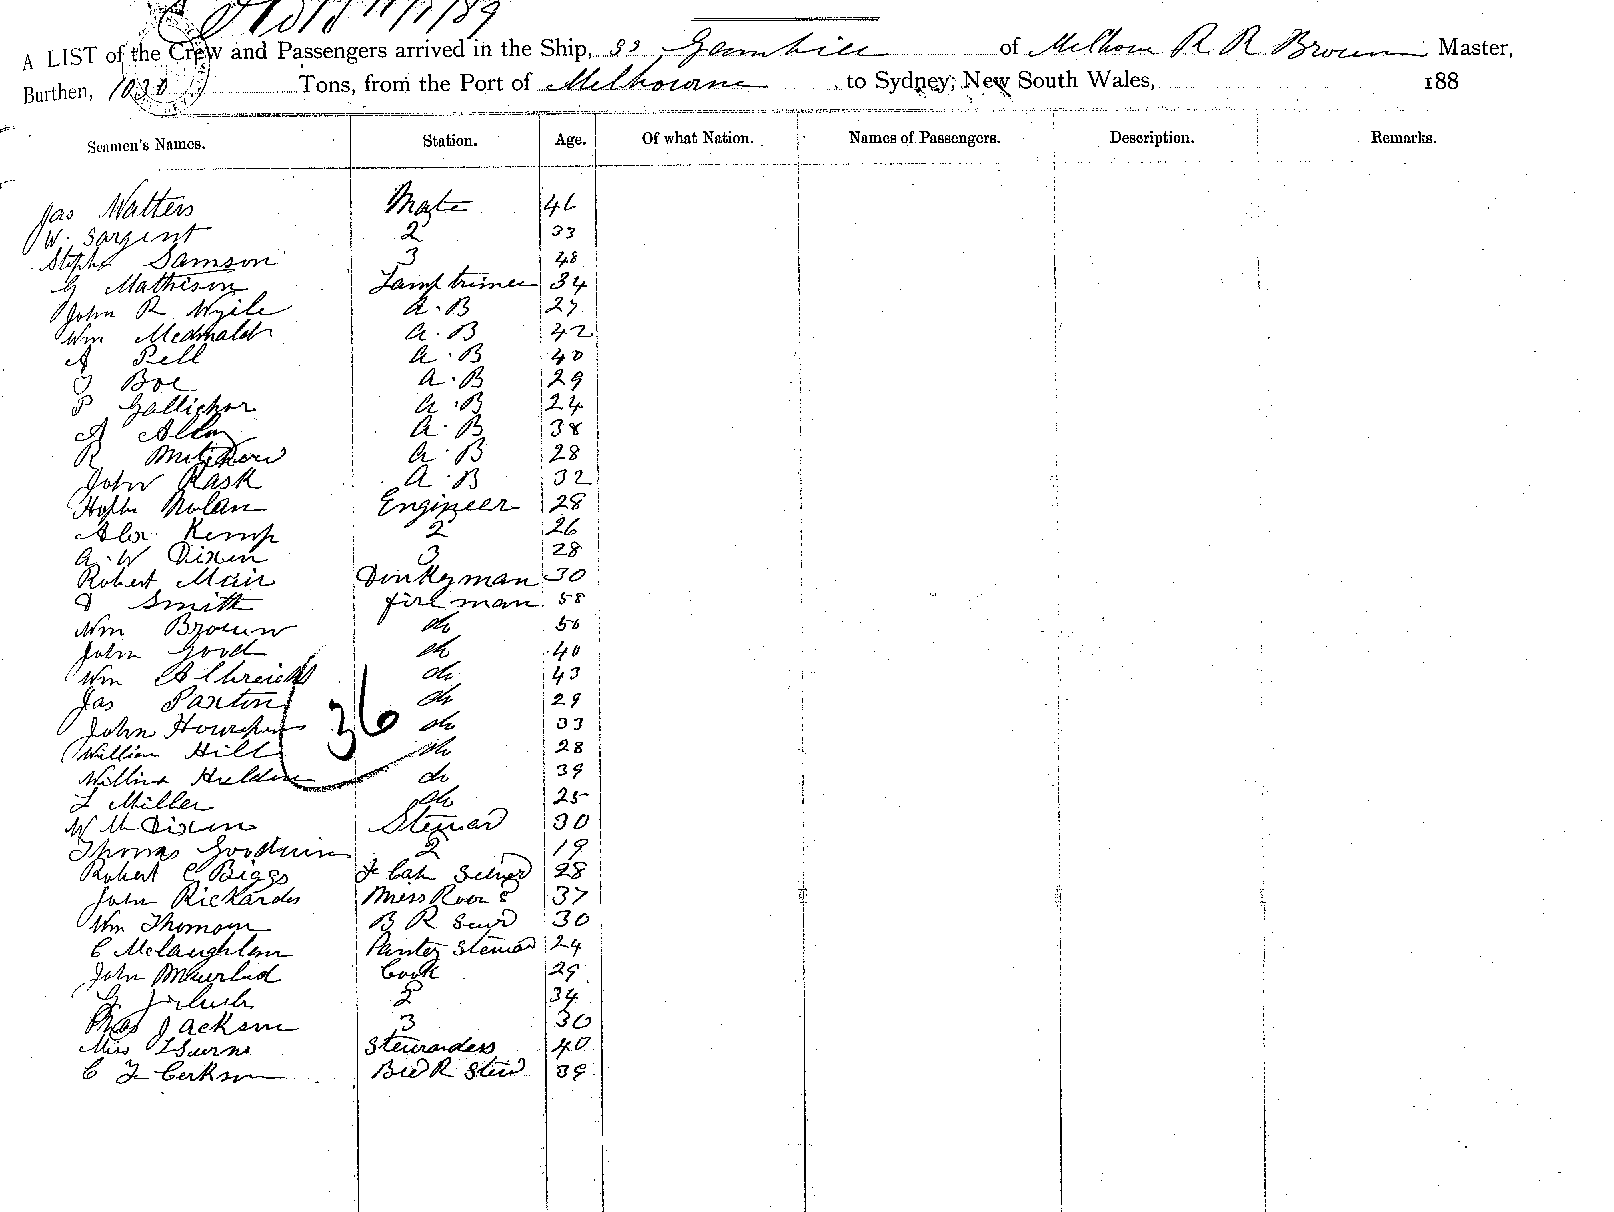 11/1/89
A LIST of the Crew and Passengers arrived in the Ship, SS Gambier of Melborn R R Brown Master,
Burthen, 1030 Tons, from the Port of Melbourne to Sydney, New South Wales, 188
Seamen's Names. Station. Age. Of what Nation. Names of Passengers. Description. Remarks.
Jas Watters Mate 46
W. Sargent 2 33
Stephn Samson 3 48
G Mathison Lamp trimer 34
John R Wyile A.B 27
Wm Mcdonald A.B 42
A Pell A.B 40
J Boe A.B 29
P Gallichor A.B 24
A Allan A.B 38
R A.B 28
John Rask A.B 32
Nolan Engineer 28
Alex Kemp 2 26
A.W Dixen 3 28
Robert Mair Donkyman 30
D Smith fire man 58
Wm Brown do 50
John Good do 40
Wm do 43
Jas Paxton do 29
John do 33
William Hill do 28
do 39
36
J Miller do 25
W M Dixen Steward 30
Thomas Goodwin 2 19
Robert C Biggs F Cab 28
John Rickardes Mess Room S 37
Wm Thomson B R 30
C Mclaughlan Pantry Steward 24
John Cook 29
G 2 34
Thos Jackson 3 30
Miss Stewardess 40
C F Cerkson Bed R Stew 39